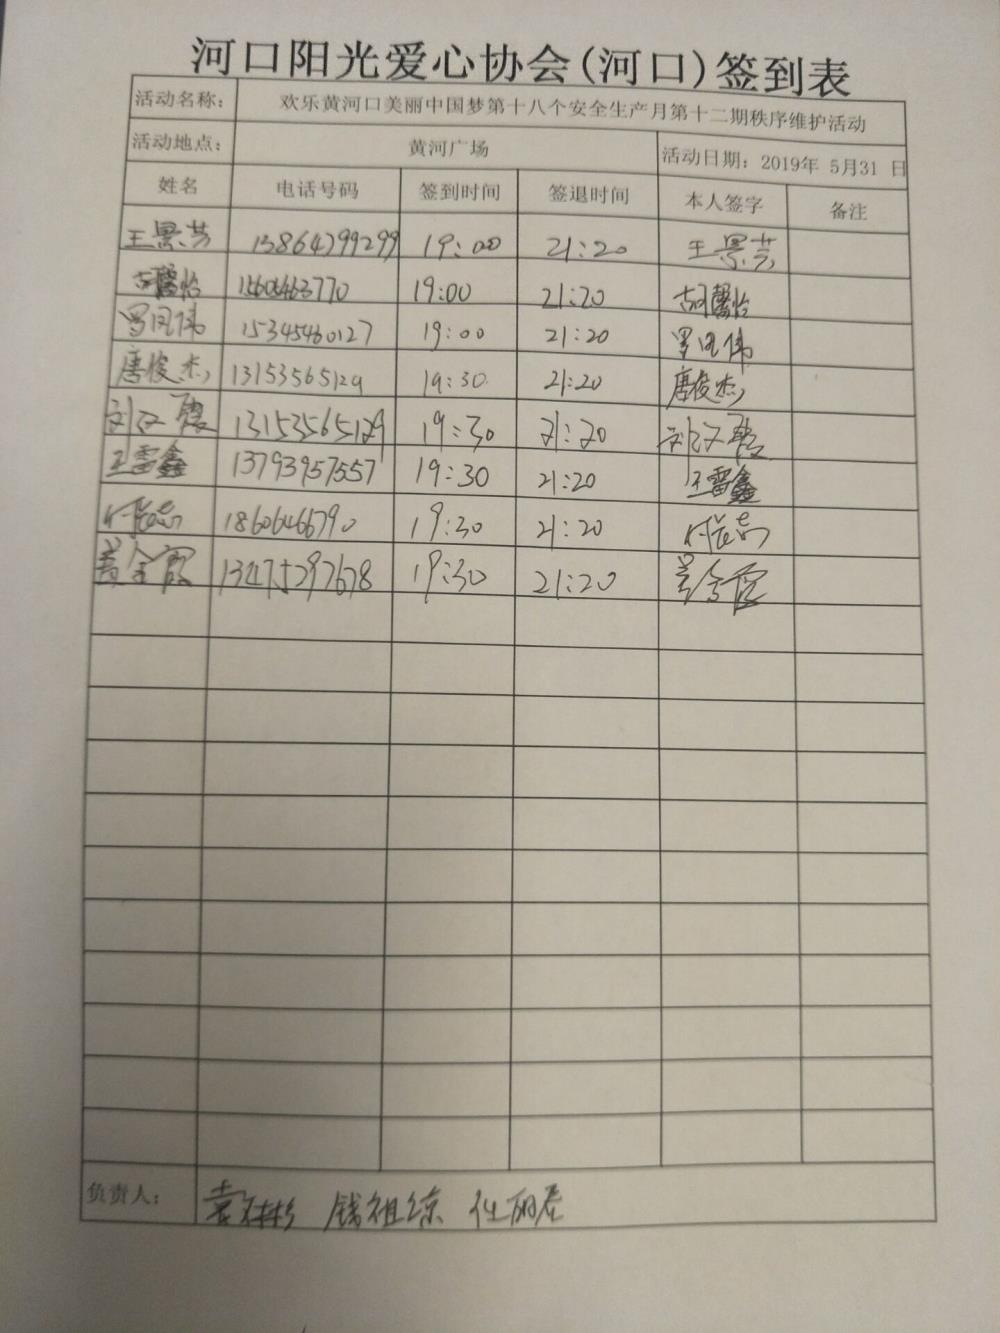 河口阳光爱心协会(河口)签到表
活动名称: 欢乐黄河口美丽中国梦第十八个安全生产月第十二期秩序维护活动
活动地点: 黄河广场 活动日期: 2019年 5月31 日
姓名 电话号码 签到时间 签退时间 本人签字 备注
王景芸 13864799299 19:00 21:20 王景芸
胡馨怡 15605463770 19:00 21:20 胡馨怡
罗凤伟 15345460127 19:00 21:20 罗凤伟
唐俊杰 13153565129 19:30 21:20 唐俊杰
刘文霞 13153565129 19:30 21:20 刘文霞
王雷鑫 13793957557 19:30 21:20 王雷鑫
18606466790 19:30 21:20
黄金霞 13475297678 19:30 21:20 黄金霞
负责人: 袁彬彬 钱祖琼 任丽君